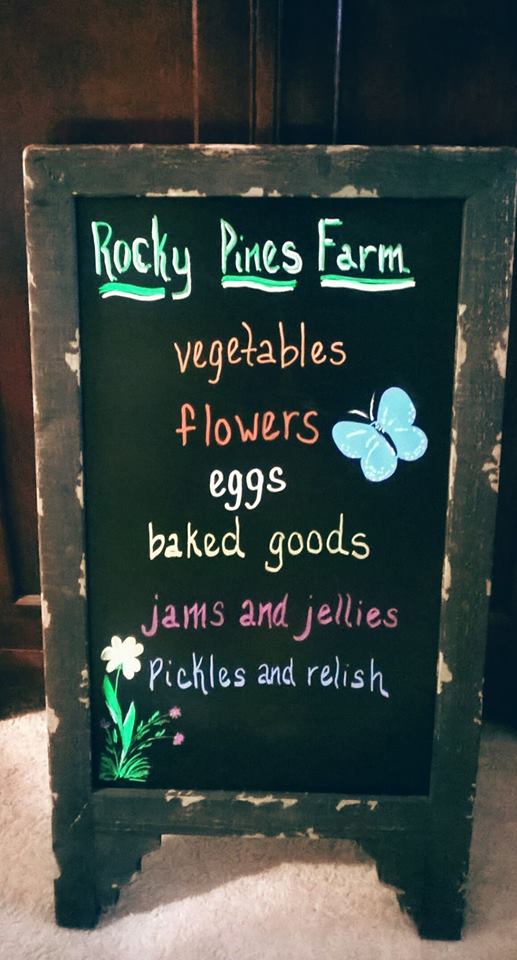 Rocky Pines Farm
vegetables
flowers
eggs
baked goods
jams and jellies
Pickles and relish